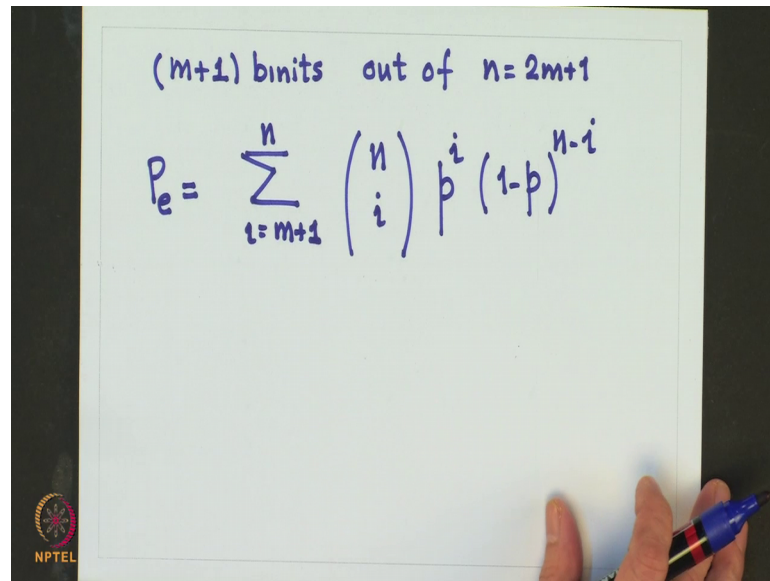 (m+1) binits out of n = 2m+1
P_e = \sum_{i=m+1}^{n} \binom{n}{i} p^i (1-p)^{n-i}
NPTEL